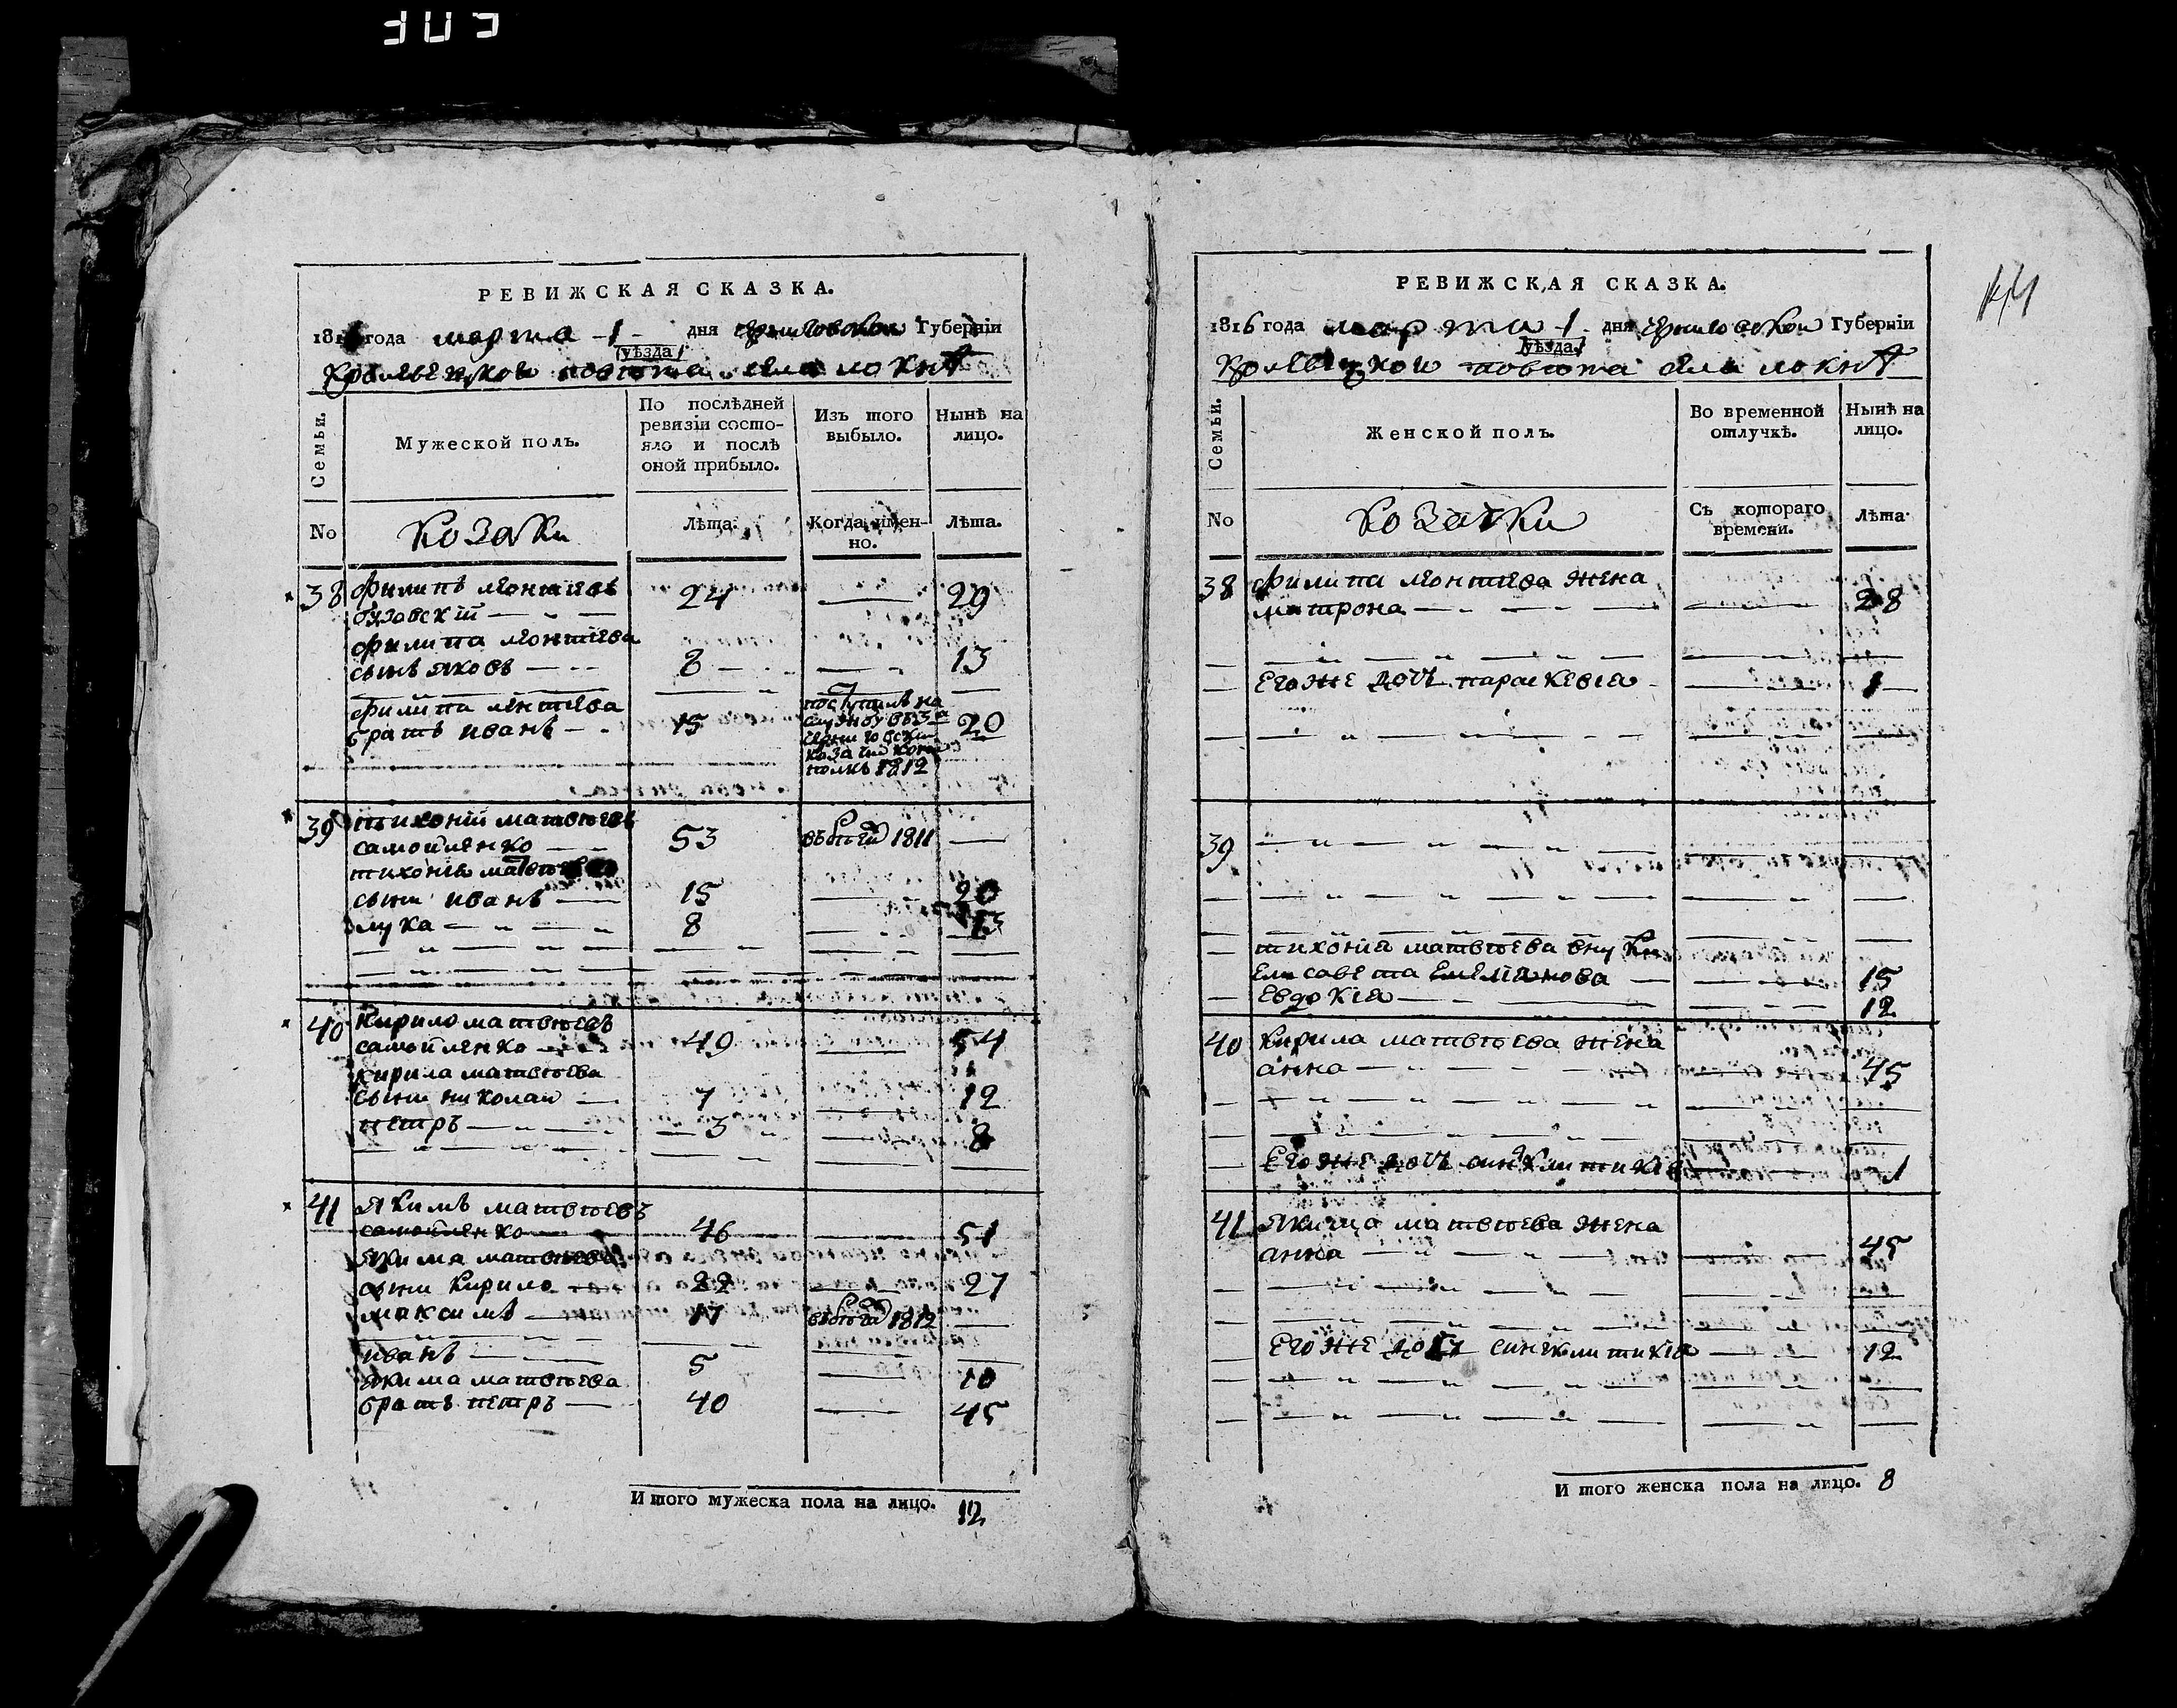 РЕВИЖСКАЯ СКАЗКА.
1816 года марта 1 дня черниговской Губерніи
уѣзда
Кролевецкой повѣта села локнѣ
Семьи.
Мужеской полъ.
По послѣдней ревизіи состо-
яло и послѣ
оной прибыло.
Изъ того
выбыло.
Нынѣ на
лицо.
No
козаки
Лѣта.
Когда имен-
но.
Лѣта.
38 филипъ леонтіевъ
24 29
филипа леонтіева
сынъ яковъ 8 13
филипа леонтіева
братъ иванъ 15 20
поступилъ на
службу въ 3й
козачій
полкъ 1812
39 тихоній матвѣевъ
самойленко 53 1811
тихонія матвѣева
сыни иванъ 15 20
лука 8 13
40 Кирило матвѣевъ
самойленко 49 54
кирила матвѣева
сыни николай 7 12
петръ 3 8
41 Якимъ матвѣевъ
самойленко 46 51
Якима матвѣева
сыни Кирило 22 27
максимъ 17 1812
иванъ 5 10
Якима матвѣева
братъ петръ 40 45
Итого мужеска пола на лицо. 12
РЕВИЖСКАЯ СКАЗКА.
1816 года марта 1 дня черниговской Губерніи
уѣзда
Кролевецкой повѣта села локнѣ
Семьи.
Женской полъ.
Во временной
отлучкѣ.
Нынѣ на
лицо.
No
козачки
Съ котораго
времени.
Лѣта
38 филипа леонтіева жена
матрона 28
Его же дочь параскевія 1
39
тихонія матвѣева внуки
Елисавета Емеліанова 15
Евдокія 12
40 Кирила матвѣева жена
анна 45
Его же дочь синклитикія 1
41 Якима матвѣева жена
анна 45
Его же дочь синклитикія 12
Итого женска пола на лицо. 8